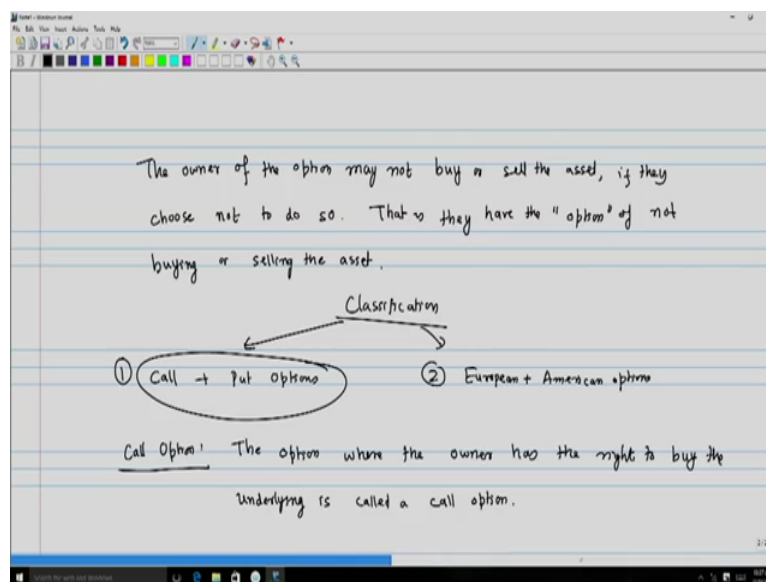 Note1 - Windows Journal
File Edit View Insert Actions Tools Help
The owner of the option may not buy or sell the asset, if they
choose not to do so. That is they have the "option" of not
buying or selling the asset.
Classification
① Call + Put Options ② European + American options
Call Option: The option where the owner has the right to buy the
underlying is called a call option.